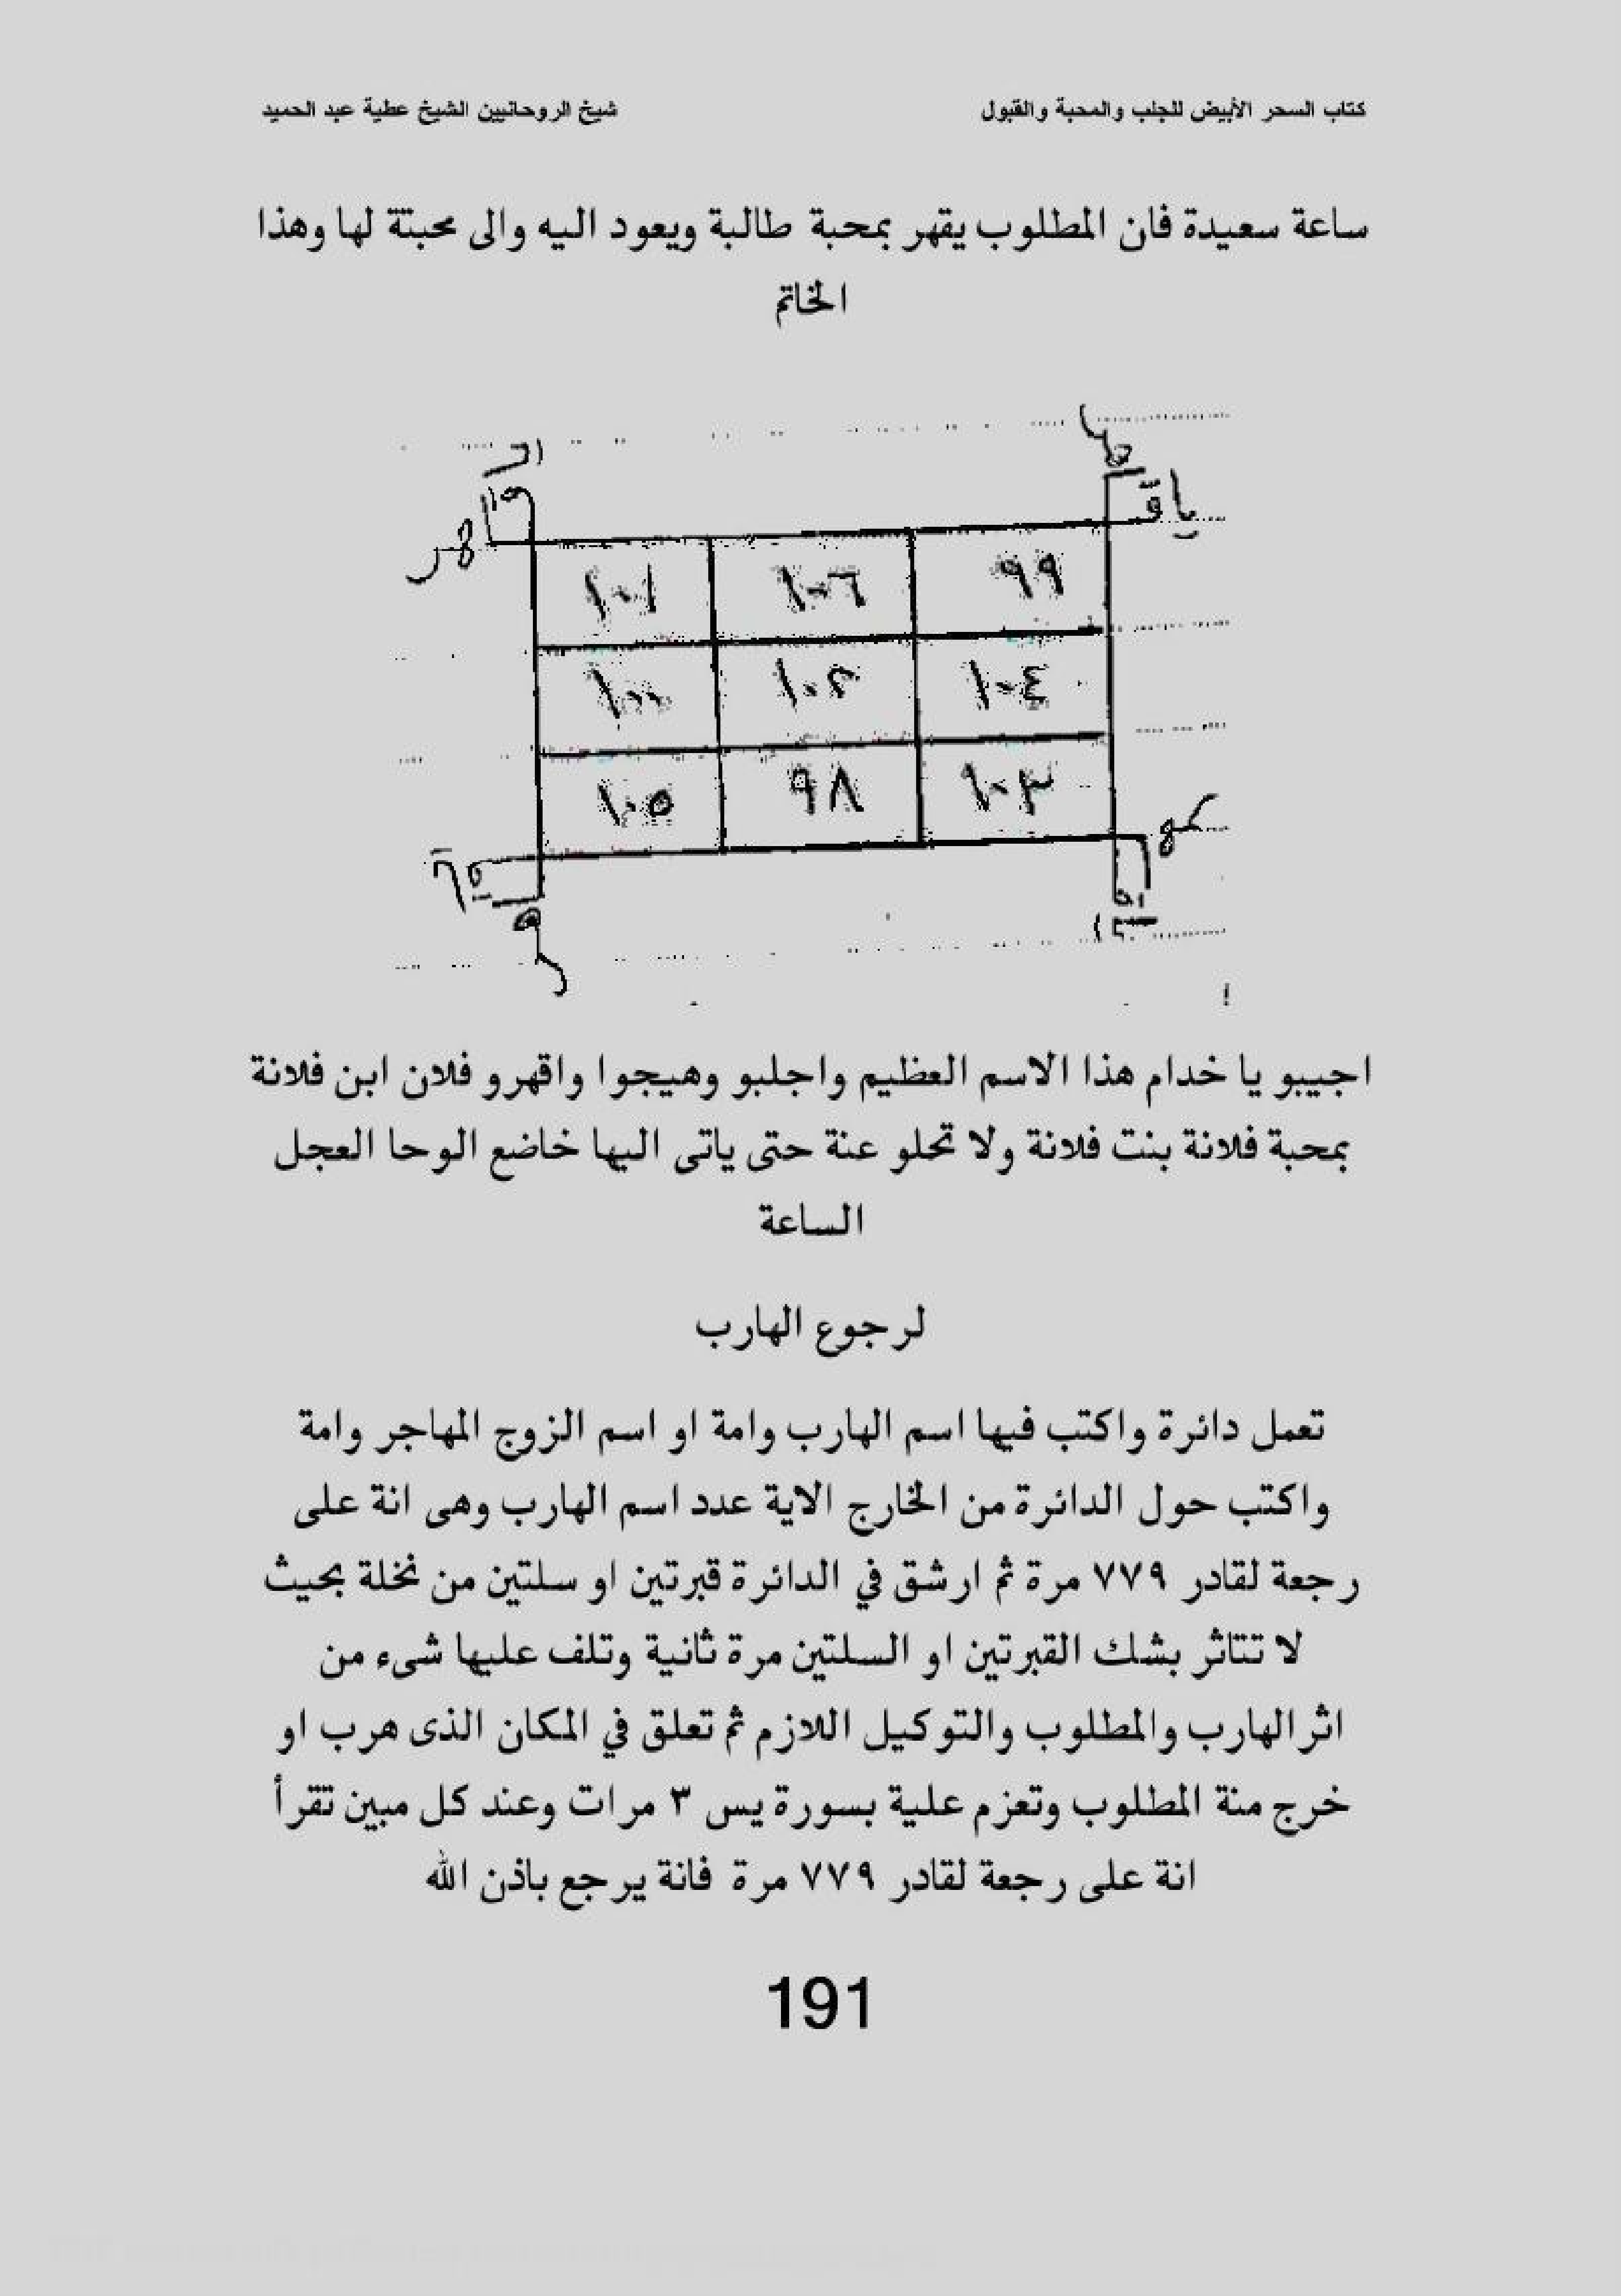 كتاب السحر الأبيض للجلب والمحبة والقبول
شيخ الروحانيين الشيخ عطية عبد الحميد
ساعة سعيدة فان المطلوب يقهر بمحبة طالبة ويعود اليه والى محبتة لها وهذا
الخاتم
٩٩ ١٠٦ ١٠١
١٠٤ ١٠٢ ١٠٠
١٠٣ ٩٨ ١٠٥
اجيبو يا خدام هذا الاسم العظيم واجلبو وهيجوا واقهرو فلان ابن فلانة
بمحبة فلانة بنت فلانة ولا تحلو عنة حتى ياتى اليها خاضع الوحا العجل
الساعة
لرجوع الهارب
تعمل دائرة واكتب فيها اسم الهارب وامة او اسم الزوج المهاجر وامة
واكتب حول الدائرة من الخارج الاية عدد اسم الهارب وهى انة على
رجعة لقادر ٧٧٩ مرة ثم ارشق في الدائرة قبرتين او سلتين من نخلة بحيث
لا تتاثر بشك القبرتين او السلتين مرة ثانية وتلف عليها شىء من
اثر الهارب والمطلوب والتوكيل اللازم ثم تعلق في المكان الذى هرب او
خرج منة المطلوب وتعزم علية بسورة يس ٣ مرات وعند كل مبين تقرأ
انة على رجعة لقادر ٧٧٩ مرة فانة يرجع باذن الله
191